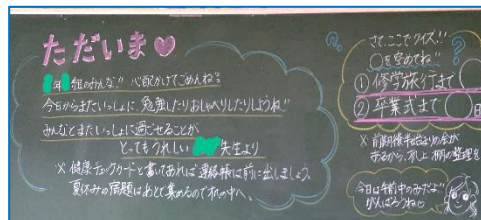 ただいま♡
年 組のみんな!! 心配かけてごめんね?
今日からまたいっしょに、勉強したりおしゃべりしたりしようね!!
みんなとまたいっしょに過ごせることが
とってもうれしい 先生より
※ 健康チェックカードと書いてあれば連絡帳は前に出しましょう。
夏休みの宿題はあとで集めるので机の中へ。
さて、ここでクイズ!!
○を埋めてね
① 修学旅行まで○
② 卒業式まで○日
※ 前期後半始めの会が
あるから、机上、棚の整理を
今日は午前中のみだよ!!
がんばろうね